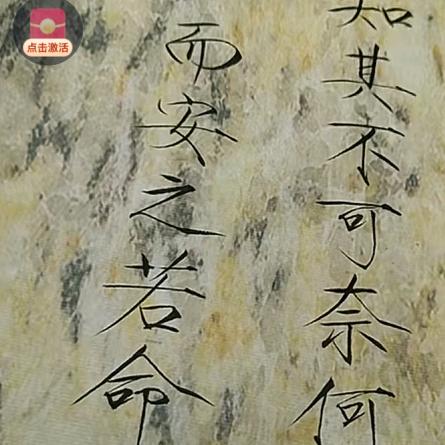 知其不可奈何
而安之若命
点击激活